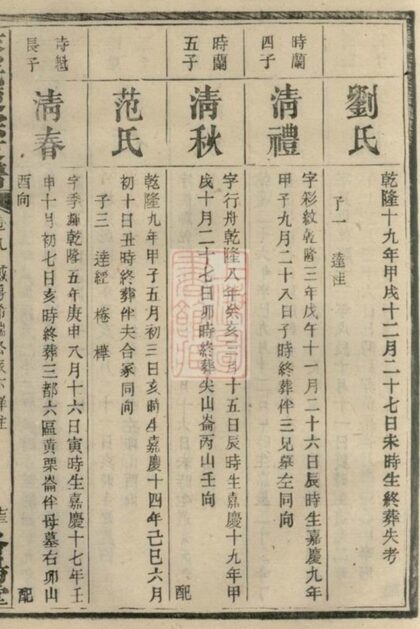 劉氏
乾隆十九年甲戌十二月二十七日未時生終葬失考
子一 達
時蘭四子
清禮
字彩紋乾隆三年戊午十一月二十六日辰時生嘉慶九年
甲子九月二十八日子時終葬伴三兄墓左同向
時蘭五子
清秋
字行舟乾隆八年癸亥三月十五日辰時生嘉慶十九年甲
戌十月二十七日卯時終葬尖山崙丙山壬向 配
范氏
乾隆九年甲子五月初三日亥時生嘉慶十四年己巳六月
初十日丑時終葬伴夫合冢同向
子三 達經 棬 樺
時魁長子
清春
字季 乾隆五年庚申八月十六日寅時生嘉慶十七年壬
申十月初七日亥時終葬三都六區黃栗崙伴母墓右卯山
酉向 配